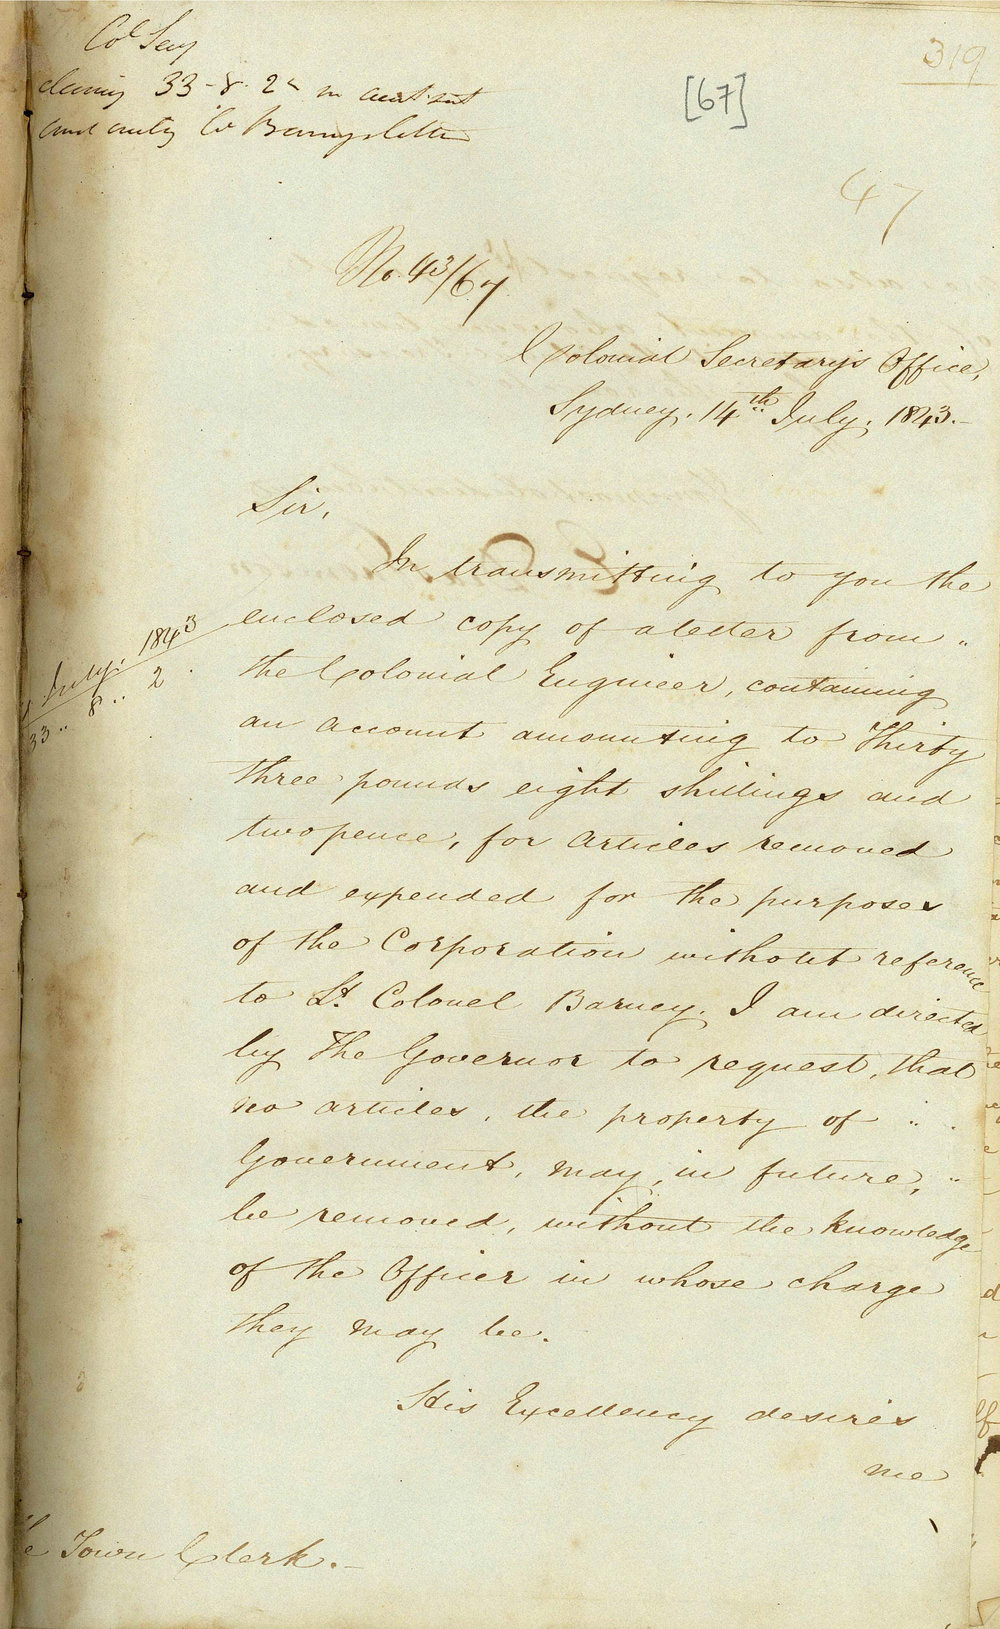 Col Secy
33-8-2
Barneys letter
[67]
319
47
No. 43/67
Colonial Secretary's Office,
Sydney. 14th July. 1843.-
Sir,
In transmitting to you the
enclosed copy of a letter from "
the Colonial Engineer, containing
an account amounting to Thirty
three pounds eight shillings and
twopence, for Articles removed
and expended for the purposes
of the Corporation without reference
to Lt. Colonel Barney. I am directed
by The Governor to request, that
no articles, the property of "
Government, may, in future, "
be removed, without the knowledge
of the Officer in whose charge
they may be.
July. 1843
33 .. 8 .. 2
His Excellency desires
me
Town Clerk.-